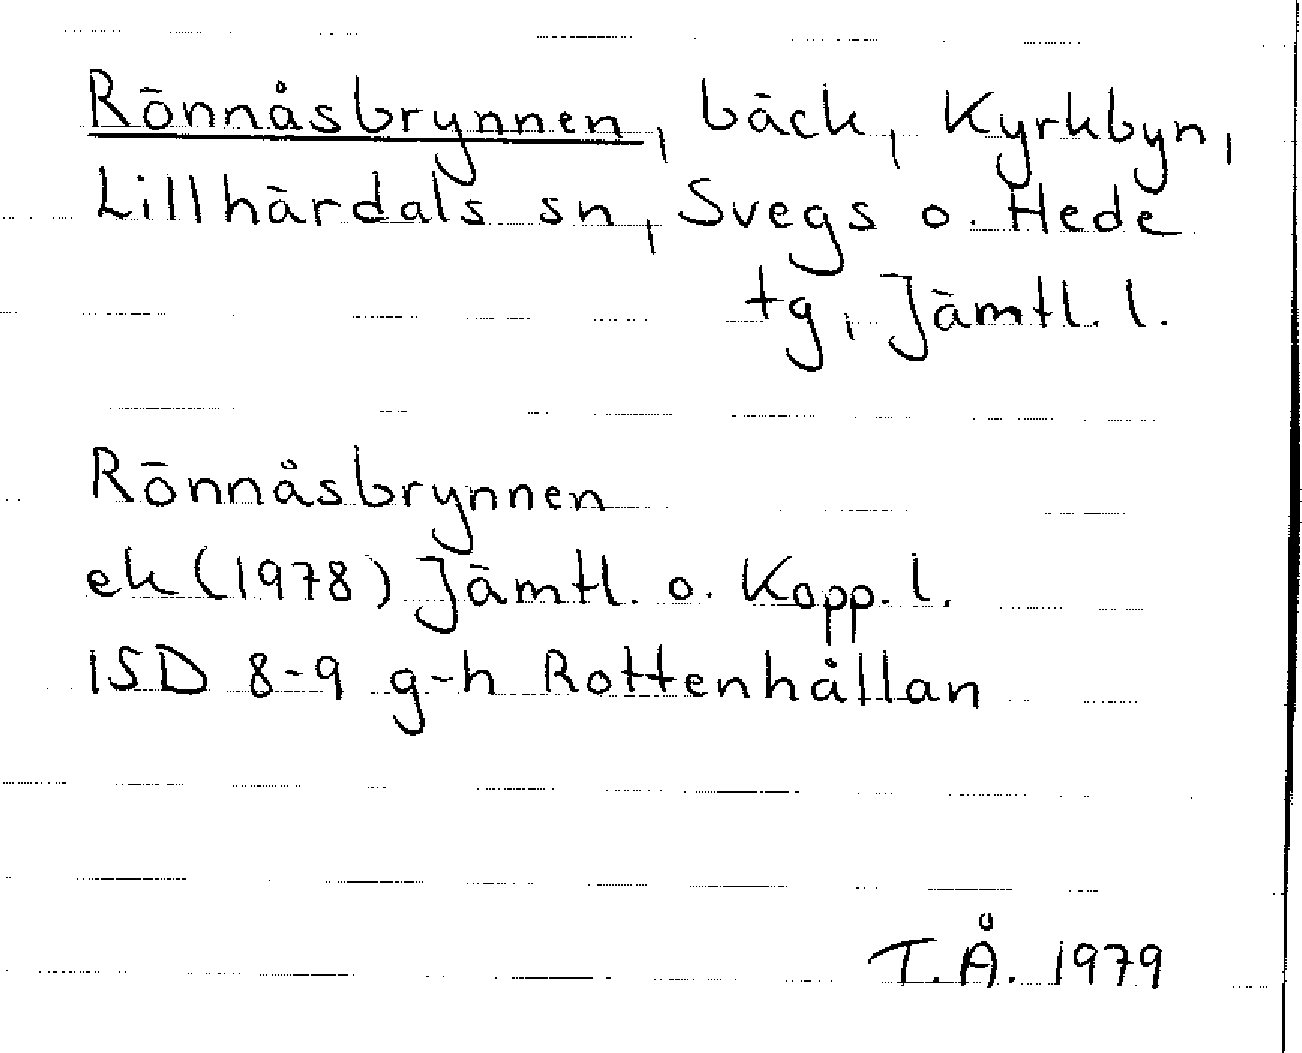 Rönnåsbrynnen, bäck, Kyrkbyn,
Lillhärdals sn, Svegs o. Hede
tg, Jämtl. l.
Rönnåsbrynnen
ek (1978) Jämtl. o. Kopp. l.
15D 8-9 g-h Rottenhållan
T.Å. 1979